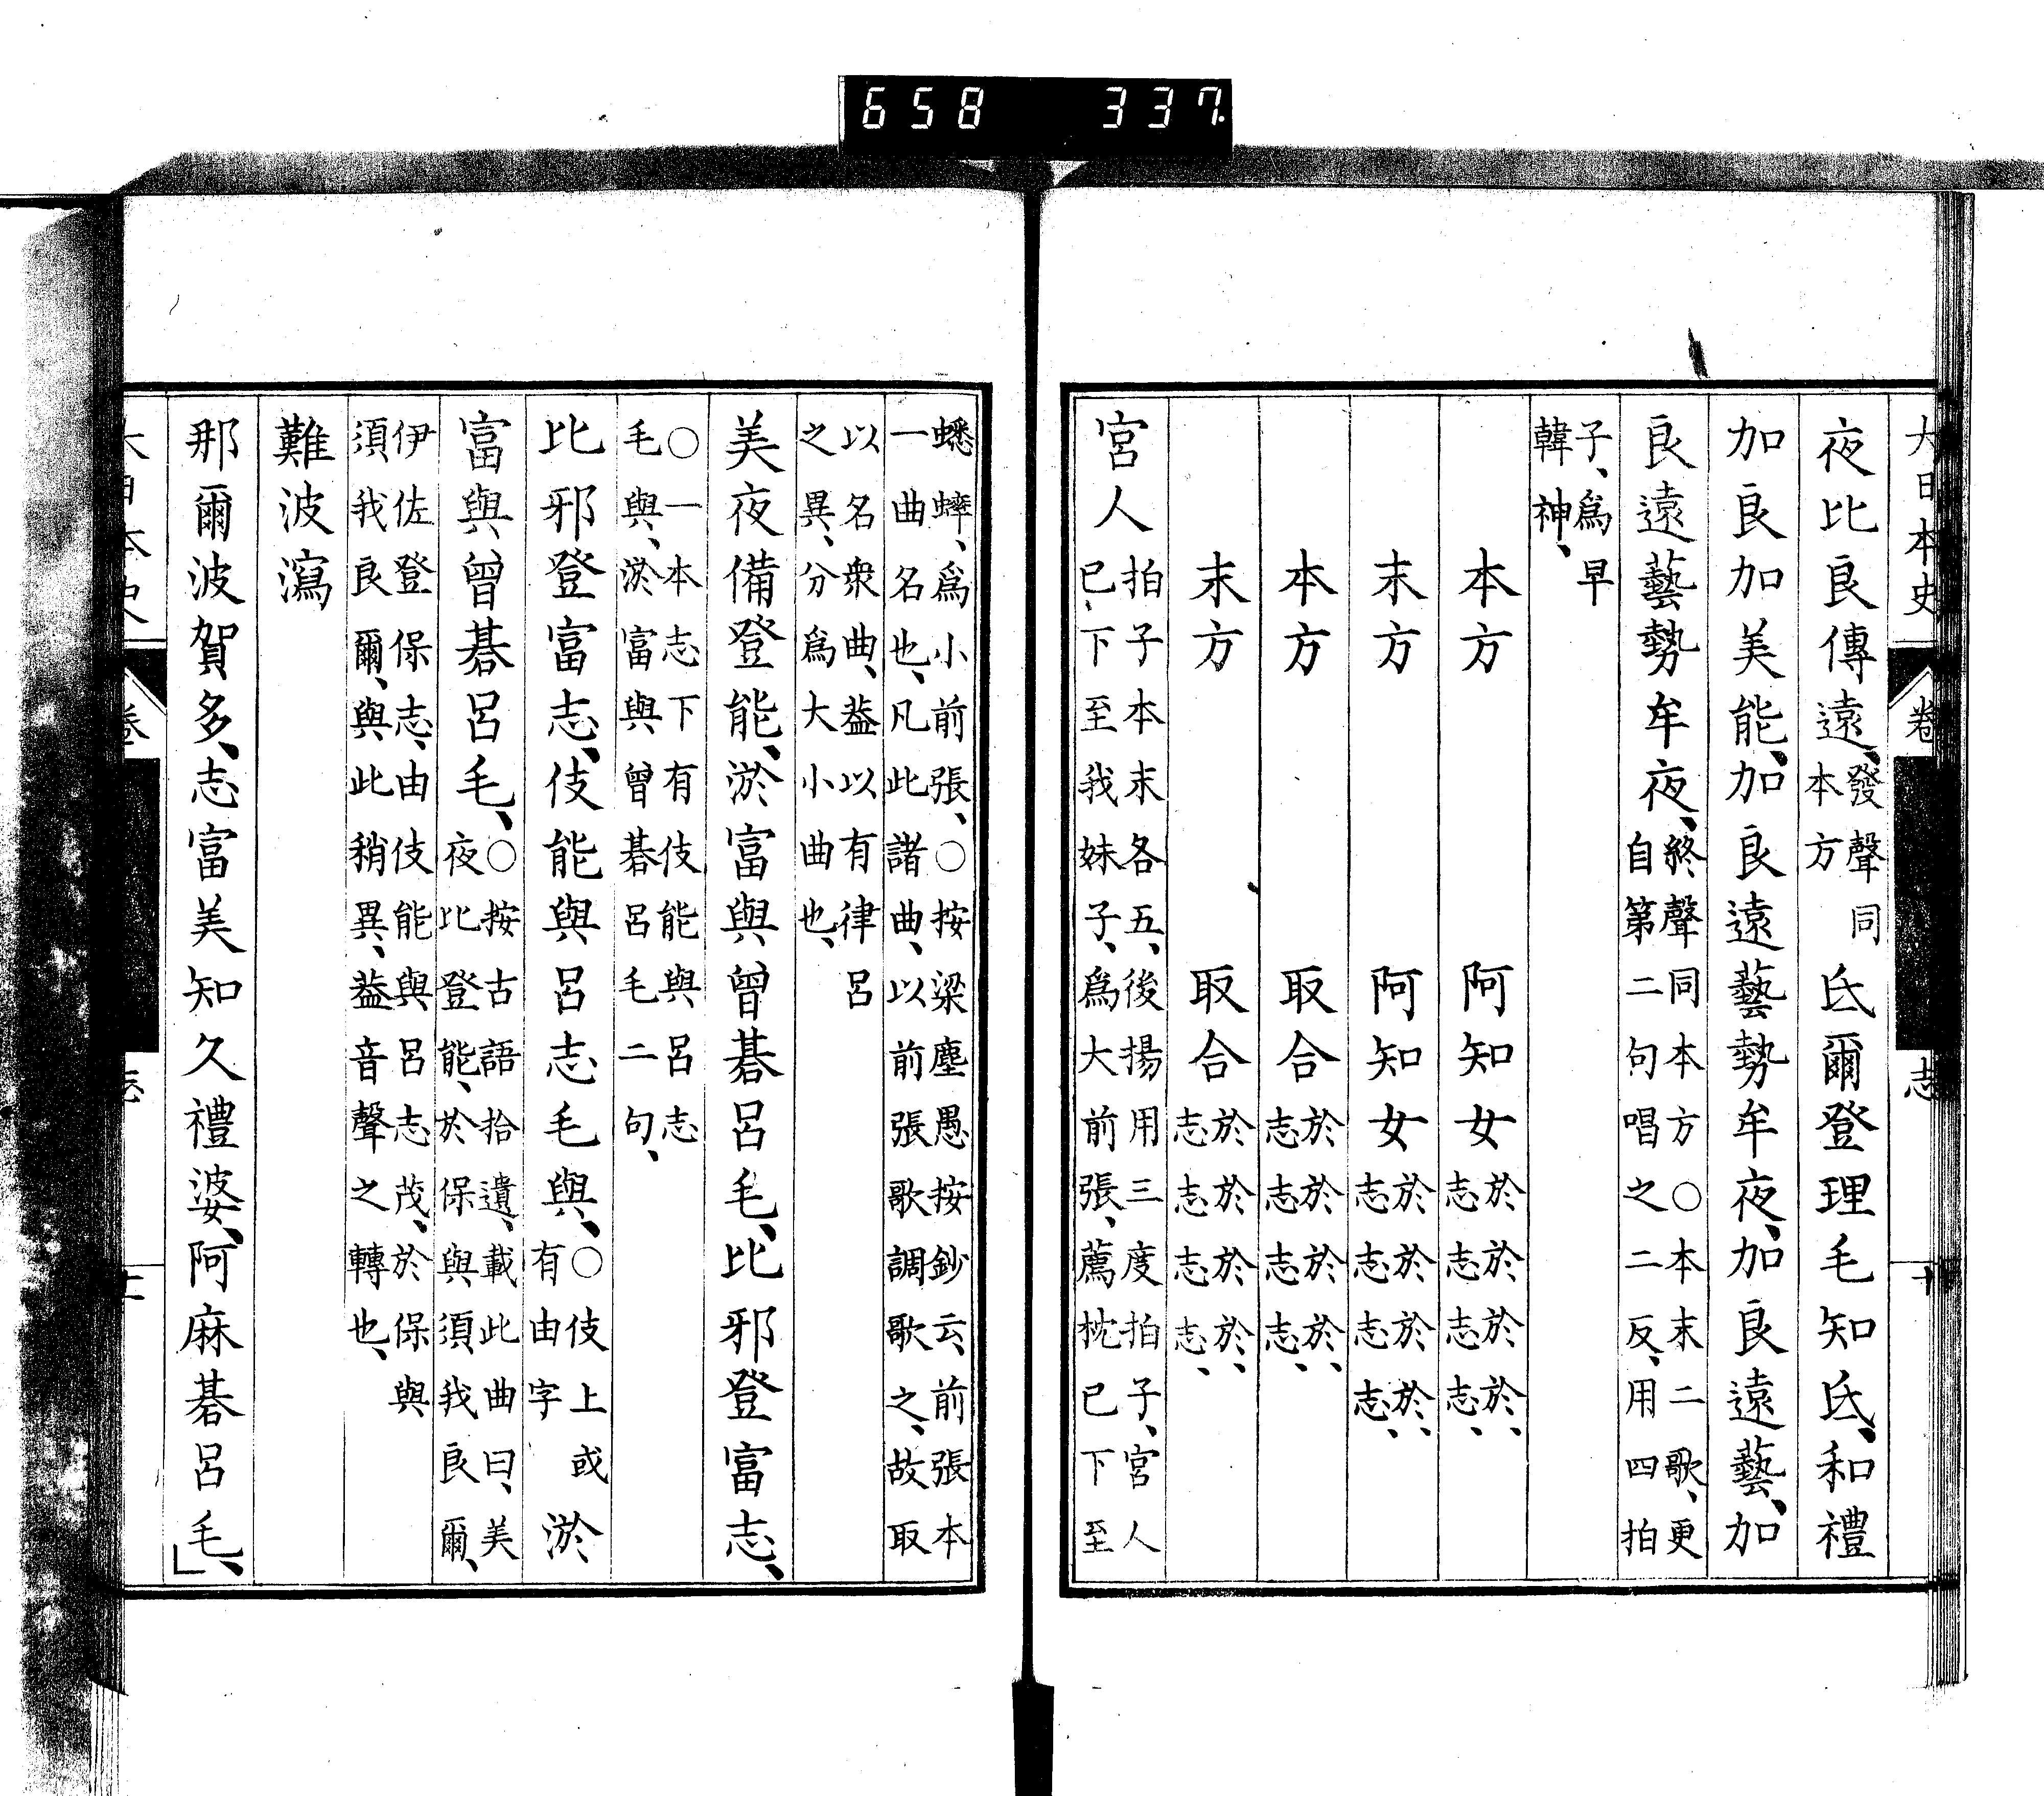 658 337.
大日本史 卷 志 十
夜比良傳遠、發聲同本方 氐爾登理毛知氐、和禮
加良加美能、加良遠藝勢牟夜、加良遠藝、加
良遠藝勢牟夜、終聲同本方○本末二歌、更自第二句唱之二反、用四拍
子、爲早韓神、
本方 阿知女於於於於、志志志志、
末方 阿知女於於於於、志志志志、
本方 取合於於於於、志志志志、
末方 取合於於於於、志志志志、
宮人拍子本末各五、後揚用三度拍子、宮人已下至我妹子、爲大前張、薦枕已下至
蟋蟀、爲小前張、○按梁塵愚按鈔云、前張本一曲名也、凡此諸曲、以前張歌調歌之、故取
以名衆曲、蓋以有律呂之異、分爲大小曲也、
美夜備登能、淤富與曾碁呂毛、比邪登富志、
○一本志下有伎能與呂志毛與、淤富與曾碁呂毛二句、
比邪登富志、伎能與呂志毛與、○伎上或有由字 淤
富與曾碁呂毛、○按古語拾遺、載此曲曰、美夜比登能、於保與須我良爾、
伊佐登保志、由伎能與呂志茂、於保與須我良爾、與此稍異、蓋音聲之轉也、
難波瀉
那爾波賀多、志富美知久禮婆、阿麻碁呂毛、」
大日本史 卷 志